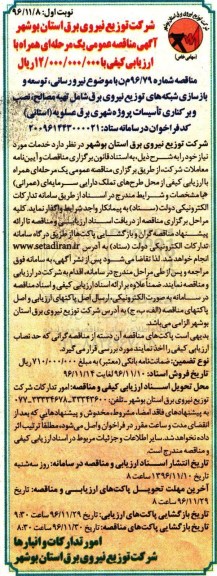 نوبت اول: ۹۶/۱۱/۸
شرکت توزیع نیروی برق استان بوشهر
آگهی مناقصه عمومی یک مرحله‌ای همراه با
ارزیابی کیفی با ۱۲/۰۰۰/۰۰۰/۰۰۰ ریال
مناقصه شماره ۹۶/۷۹م‌ن با موضوع نیرورسانی، توسعه و
بازسازی شبکه‌های توزیع برق شامل تهیه مصالح، نصب
و برکناری تأسیسات پروژه شهری برق عسلویه (استانی)
کد فراخوان در سامانه ستاد: ۲۰۰۹۶۱۴۴۳۰۰۰۰۲۱
شرکت توزیع نیروی برق استان بوشهر در نظر دارد خدمات مورد
نیاز خود را به شرح ذیل، به استناد قانون برگزاری مناقصات و آیین‌نامه
معاملات شرکت، از طریق برگزاری مناقصه عمومی یک مرحله‌ای همراه
با ارزیابی کیفی از محل طرح‌های تملک دارایی سرمایه‌ای (عمرانی)
با مشخصات و شرایط مندرج در اسناد از طریق سامانه تدارکات
الکترونیکی دولت (ستاد) به پیمانکار واجد شرایط واگذار نماید. کلیه
مراحل برگزاری مناقصه از دریافت اسناد ارزیابی و مناقصه تا ارائه
پیشنهاد مناقصه‌گران و بازگشایی پاکت‌ها از طریق درگاه سامانه
تدارکات الکترونیکی دولت (ستاد) به آدرس www.setadiran.ir
انجام خواهد شد. لذا متقاضی می‌بایست پس از نشر آگهی، به سامانه فوق
مراجعه و پس از طی مراحل مندرج در سامانه، اقدام به شرکت در ارزیابی
و مناقصه نمایند. ضمناً علاوه بر ارائه اسناد ارزیابی کیفی و اسناد مناقصه
در سامانه به صورت الکترونیکی، ارسال اصل پاکتهای ارزیابی و اصل
پاکتهای مناقصه (الف-ب-ج) به آدرس شرکت توزیع نیروی برق استان
بوشهر الزامی می‌باشد.
بدیهی است پاکت‌های مناقصه آن دسته از مناقصه‌گرانی که حد نصاب
ارزیابی کیفی را اخذ ننمایند مورد بررسی قرار نمی‌گیرد.
نوع تضمین: ضمانتنامه بانکی (معتبر) به مبلغ ۷۱۰/۰۰۰/۰۰۰ ریال
تاریخ فروش اسناد: ۹۶/۱۱/۱۰ لغایت ۹۶/۱۱/۱۴
محل تحویل اسناد ارزیابی کیفی و مناقصه: امور تدارکات شرکت
توزیع نیروی برق استان بوشهر
به پیشنهادهای فاقد امضا، مشروط، مخدوش و پیشنهادهایی که بعد از
انقضای مدت و ساعت مقرر در فراخوان واصل می‌شود، مطلقاً ترتیب اثر
داده نخواهد شد. سایر اطلاعات و جزئیات مربوط در اسناد ارزیابی کیفی
و مناقصه مندرج است.
تاریخ انتشار اسناد ارزیابی و مناقصه در سامانه: روز سه‌شنبه
تاریخ ۱۳۹۶/۱۱/۱۰ ساعت ۸
آخرین مهلت تحویل پاکت‌های ارزیابی و مناقصه: تاریخ
۹۶/۱۱/۲۹ ساعت ۸
تاریخ بازگشایی پاکت‌های ارزیابی: ۹۶/۱۱/۲۹ ساعت ۹:۳۰
تاریخ بازگشایی پاکت‌های مناقصه: تاریخ ۹۶/۱۱/۳۰ ساعت ۸:۳۰
امور تدارکات و انبارها
شرکت توزیع نیروی برق استان بوشهر